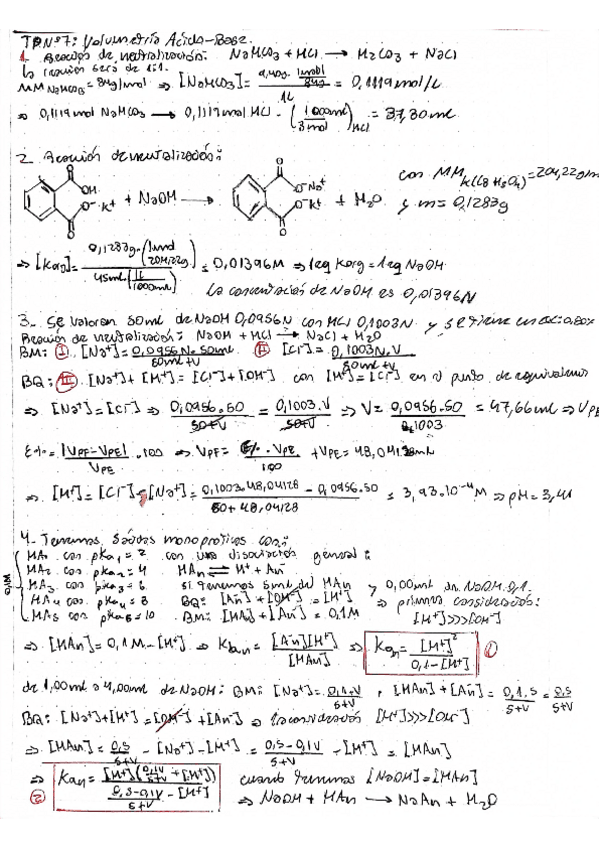 TPNº7: Volumetría Acido-Base.
1. Reacción de neutralización: NaHCO3 + HCl → H2CO3 + NaCl
La reacción será de 1:1.
MM NaHCO3 = 84g/mol ⇒ [NaHCO3] = 1L = 0,1119 mol/L
⇒ 0,1119 mol NaHCO3 → 0,1119 mol HCl · (1000ml / 3mol)HCl = 37,30 ml
2. Reacción de neutralización:
OH O⁻K⁺ + NaOH → O⁻Na⁺ O⁻K⁺ + H2O con MM K(C8H5O4) = 204,22g/m
y m = 0,1283g
⇒ [Kag] = 0,1283g · (1mol / 204,22g) / 45ml · (1L / 1000ml) = 0,01396M ⇒ 1eq Karg = 1eq NaOH
La concentración de NaOH es 0,01396N
3. Se valoran 50ml de NaOH 0,0956N con HCl 0,1003N y se tiene un
Reacción de neutralización: NaOH + HCl → NaCl + H2O
BM: I. [Na⁺] = 0,0956N·50ml / 50ml+V II [Cl⁻] = 0,1003N·V / 50ml+V
BQ: III. [Na⁺] + [H⁺] = [Cl⁻] + [OH⁻] con [H⁺] = en el punto de equivalencia
⇒ [Na⁺] = [Cl⁻] ⇒ 0,0956·50 / 50+V = 0,1003·V / 50+V ⇒ V = 0,0956·50 / 0,1003 = 47,66ml ⇒ VPE
E% = |VPF-VPE| / VPE · 100 ⇒ VPF = E%·VPE / 100 + VPE = 48,04128ml
⇒ [H⁺] = [Cl⁻] - [Na⁺] = 0,1003·48,04128 - 0,0956·50 / 50+48,04128 = 3,93·10⁻⁴M ⇒ pH = 3,41
4. Tenemos 5 ácidos monopróticos con:
HA1 con pKa1 = 2 con una disociación general:
HA2 con pKa2 = 4 HAn ⇌ H⁺ + An⁻
0,1M HA3 con pKa3 = 6 si tenemos 5ml del HAn y 0,00ml de NaOH 0,1
HA4 con pKa4 = 8 BQ: [An⁻] + [OH⁻] = [H⁺] ⇒ primera consideración:
HA5 con pKa5 = 10 BM: [HA] + [An⁻] = 0,1M [H⁺]>>>[OH⁻]
⇒ [HAn] = 0,1M - [H⁺] ⇒ Kan = [An⁻][H⁺] / [HAn] ⇒ Kan = [H⁺]² / 0,1-[H⁺] 1
de 1,00ml a 4,00ml de NaOH: BM: [Na⁺] = 0,1·V / 5+V , [HAn] + [An⁻] = 0,1·5 / 5+V = 0,5 / 5+V
BQ: [Na⁺] + [H⁺] = [OH⁻] + [An⁻] ⇒ la consideración [H⁺]>>>[OH⁻]
⇒ [HAn] = 0,5 / 5+V - [Na⁺] - [H⁺] = 0,5-0,1V / 5+V - [H⁺] = [HAn]
⇒ Kan = [H⁺](0,1V / 5+V + [H⁺]) / 0,5-0,1V / 5+V - [H⁺] cuando tenemos [NaOH] = [HAn]
2 ⇒ NaOH + HAn → NaAn + H2O